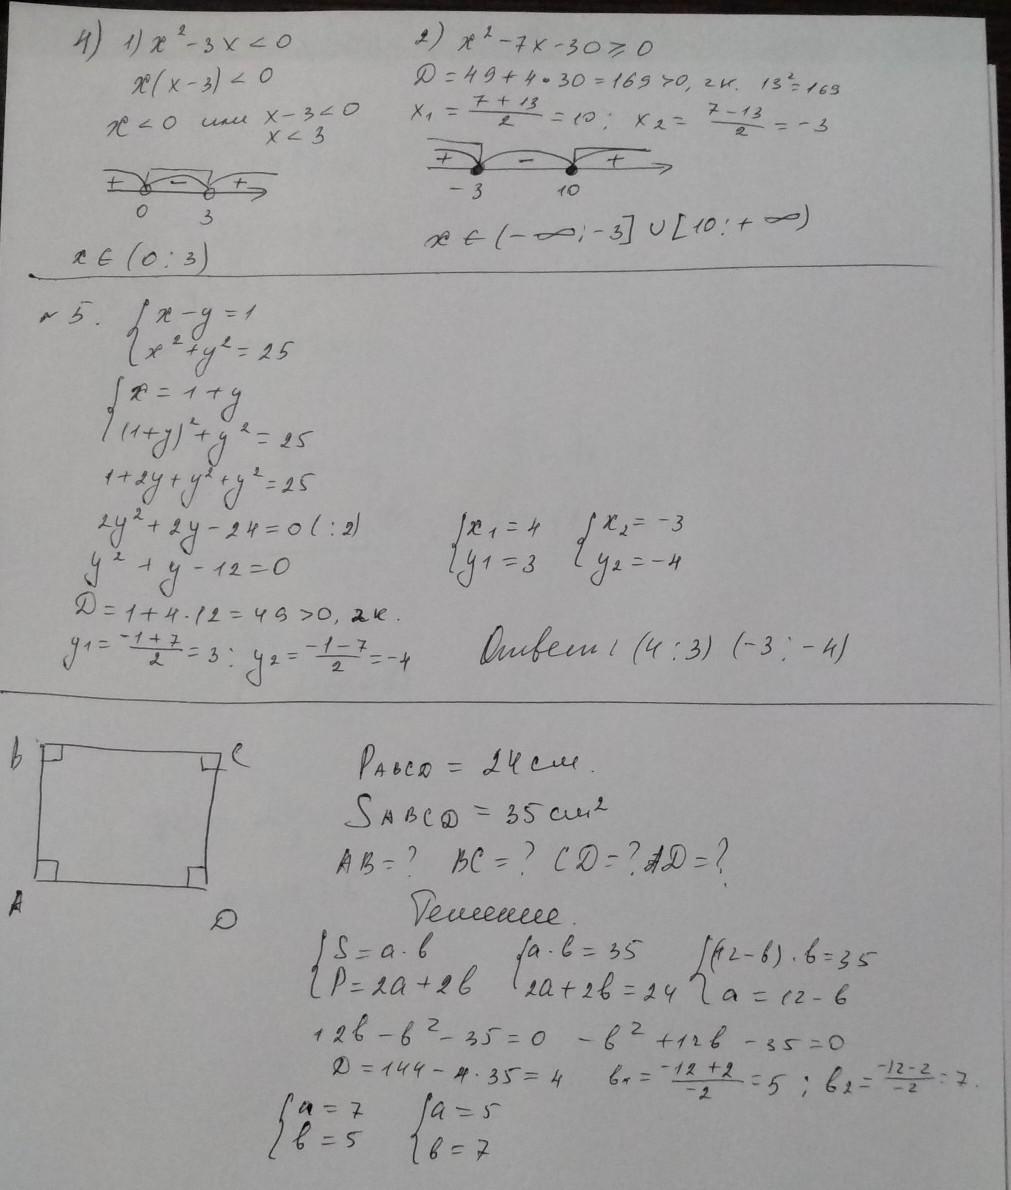 4) 1) x² - 3x < 0
x(x - 3) < 0
x < 0 или x - 3 < 0
x < 3
+ - +
0 3
x ∈ (0 ; 3)
2) x² - 7x - 30 ≥ 0
D = 49 + 4 • 30 = 169 > 0, 2к. 13² = 169
x₁ = (7 + 13)/2 = 10 ; x₂ = (7 - 13)/2 = -3
+ - +
-3 10
x ∈ (-∞ ; -3] ∪ [10 ; +∞)
№ 5. { x - y = 1
x² + y² = 25
{ x = 1 + y
(1 + y)² + y² = 25
1 + 2y + y² + y² = 25
2y² + 2y - 24 = 0 (: 2)
y² + y - 12 = 0
D = 1 + 4 · 12 = 49 > 0, 2к.
y₁ = (-1 + 7)/2 = 3 ; y₂ = (-1 - 7)/2 = -4
{ x₁ = 4 { x₂ = -3
y₁ = 3 y₂ = -4
Ответ : (4 ; 3) (-3 ; -4)
B C
A D
P ABCD = 24 см.
S ABCD = 35 см²
AB = ? BC = ? CD = ? AD = ?
Решение.
{ S = a · b { a · b = 35 { (12 - b) · b = 35
P = 2a + 2b 2a + 2b = 24 a = 12 - b
12b - b² - 35 = 0 -b² + 12b - 35 = 0
D = 144 - 4 · 35 = 4 b₁ = (-12 + 2)/-2 = 5 ; b₂ = (-12 - 2)/-2 = 7.
{ a = 7 { a = 5
b = 5 b = 7